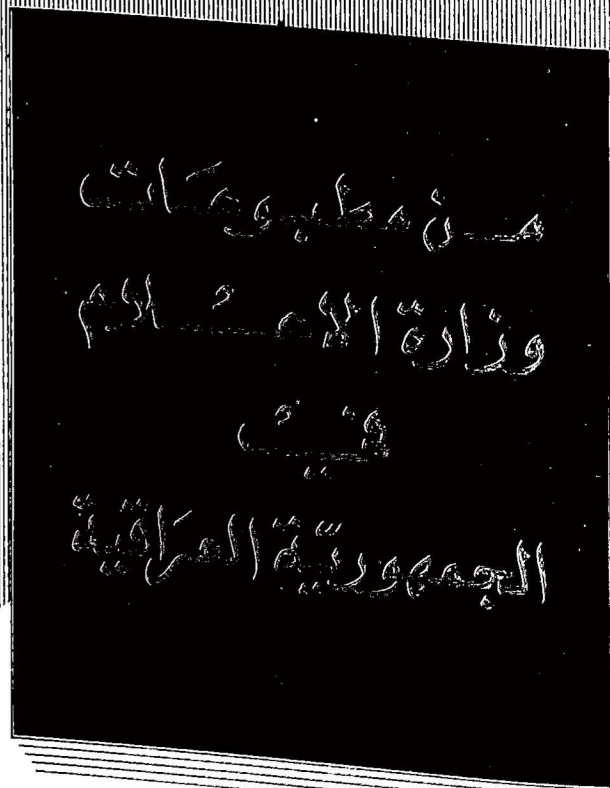 من مطبوعات
وزارة الإعلام
في
الجمهورية العراقية